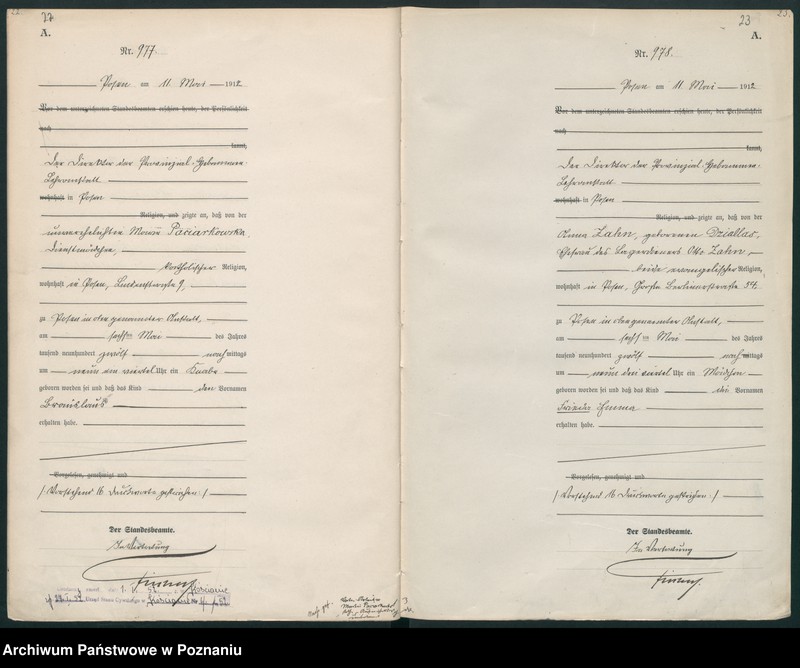 22
A.
Nr. 977.
Posen am 11 Mai 1912
Vor dem unterzeichneten Standesbeamten erschien heute, der Persönlichkeit
nach
kannt,
der Direktor der Provinzial-Hebammen-
Lehranstalt
wohnhaft in Posen
Religion, und zeigte an, daß von der
unverehelichten Maria Paciarkowska,
Dienstmädchen,
katholischer Religion,
wohnhaft in Posen,
zu Posen in der genannten Anstalt,
am sechsten Mai des Jahres
tausend neunhundert zwölf nachmittags
um neun ein viertel Uhr ein Knabe
geboren worden sei und daß das Kind den Vornamen
Bronislaus
erhalten habe.
Vorgelesen, genehmigt und
/:Vorstehend 16 Druckworte gestrichen:/
Der Standesbeamte.
In Vertretung
Kościanie
23
A.
Nr. 978.
Posen am 11 Mai 1912
Vor dem unterzeichneten Standesbeamten erschien heute, der Persönlichkeit
nach
kannt,
Der Direktor der Provinzial-Hebammen-
Lehranstalt
wohnhaft in Posen
Religion, und zeigte an, daß von der
Anna Zahn, geborenen Dziallas,
Ehefrau des Otto Zahn,
beide evangelischer Religion,
wohnhaft in Posen, Große Berlinerstraße 54
zu Posen in der genannten Anstalt,
am sechsten Mai des Jahres
tausend neunhundert zwölf nachmittags
um neun drei viertel Uhr ein Mädchen
geboren worden sei und daß das Kind die Vornamen
Frieda Emma
erhalten habe.
Vorgelesen, genehmigt und
/:Vorstehend 16 Druckworte gestrichen:/
Der Standesbeamte.
In Vertretung
Archiwum Państwowe w Poznaniu